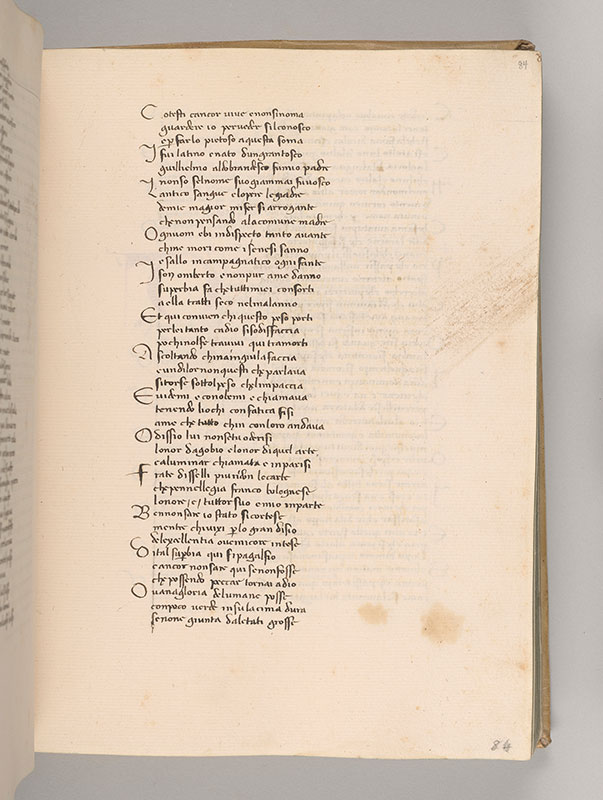 84
Cotesti cancor vive enonsinoma
guardere io pervedr silconosco
e p farlo pietoso aquesta soma
I fui latino enato dungrantosco
guilhielmo aldobrandesco fumio padre
I nonso selnome suo giammai fu vosco
Lantico sangue elopere legiadre
demie magior mifer si arrogante
che non pensando alacomune madre
Ognuom ebi indispecto tanto avante
chine mori come i senesi sanno
e sallo incampagnatico ogni fante
I son omberto enonpur ame danno
superbia fa che tuttimiei consorti
a ella tratti seco nelmalanno
Et qui convien chi questo peso porti
perlei tanto cadio sisodisfaccia
pochinolfe travivi qui tramorti
Ascoltando chinaingiulafaccia
e undilor non questi che parlava
si torse sottol peso chelimpaccia
E videmi e conobemi e chiamava
tenendo liochi con fatica fisi
ame che tutto chin con loro andava
O dissio lui nonsetu oderisi
lonor dagobio elonor diquel arte
caluminar chiamata e inparisi
Frate diselli piu ridon lecarte
che pennellegia franco bolognese
lonore / e / tuttor suo e mio inparte
Bennonsare io stato si cortese
mentre chivixi p lo gran disio
delexcellentia ove mio core intese
Dital supbia qui si paga lfio
e ancor nonsare qui senonfosse
che possendo peccar tornai adio
O vanagloria delumane posse
compoco verde insulacima dura
senone giunta daletati grosse
84